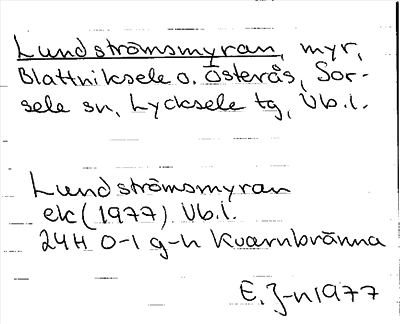 Lundströmsmyran, myr,
Blattniksele o. Österås, Sor-
sele sn, Lycksele tg, Vb.l.
Lundströmsmyran
ek (1977) Vb.l.
24H 0-1 g-h Kvarnbränna
E. J-n 1977